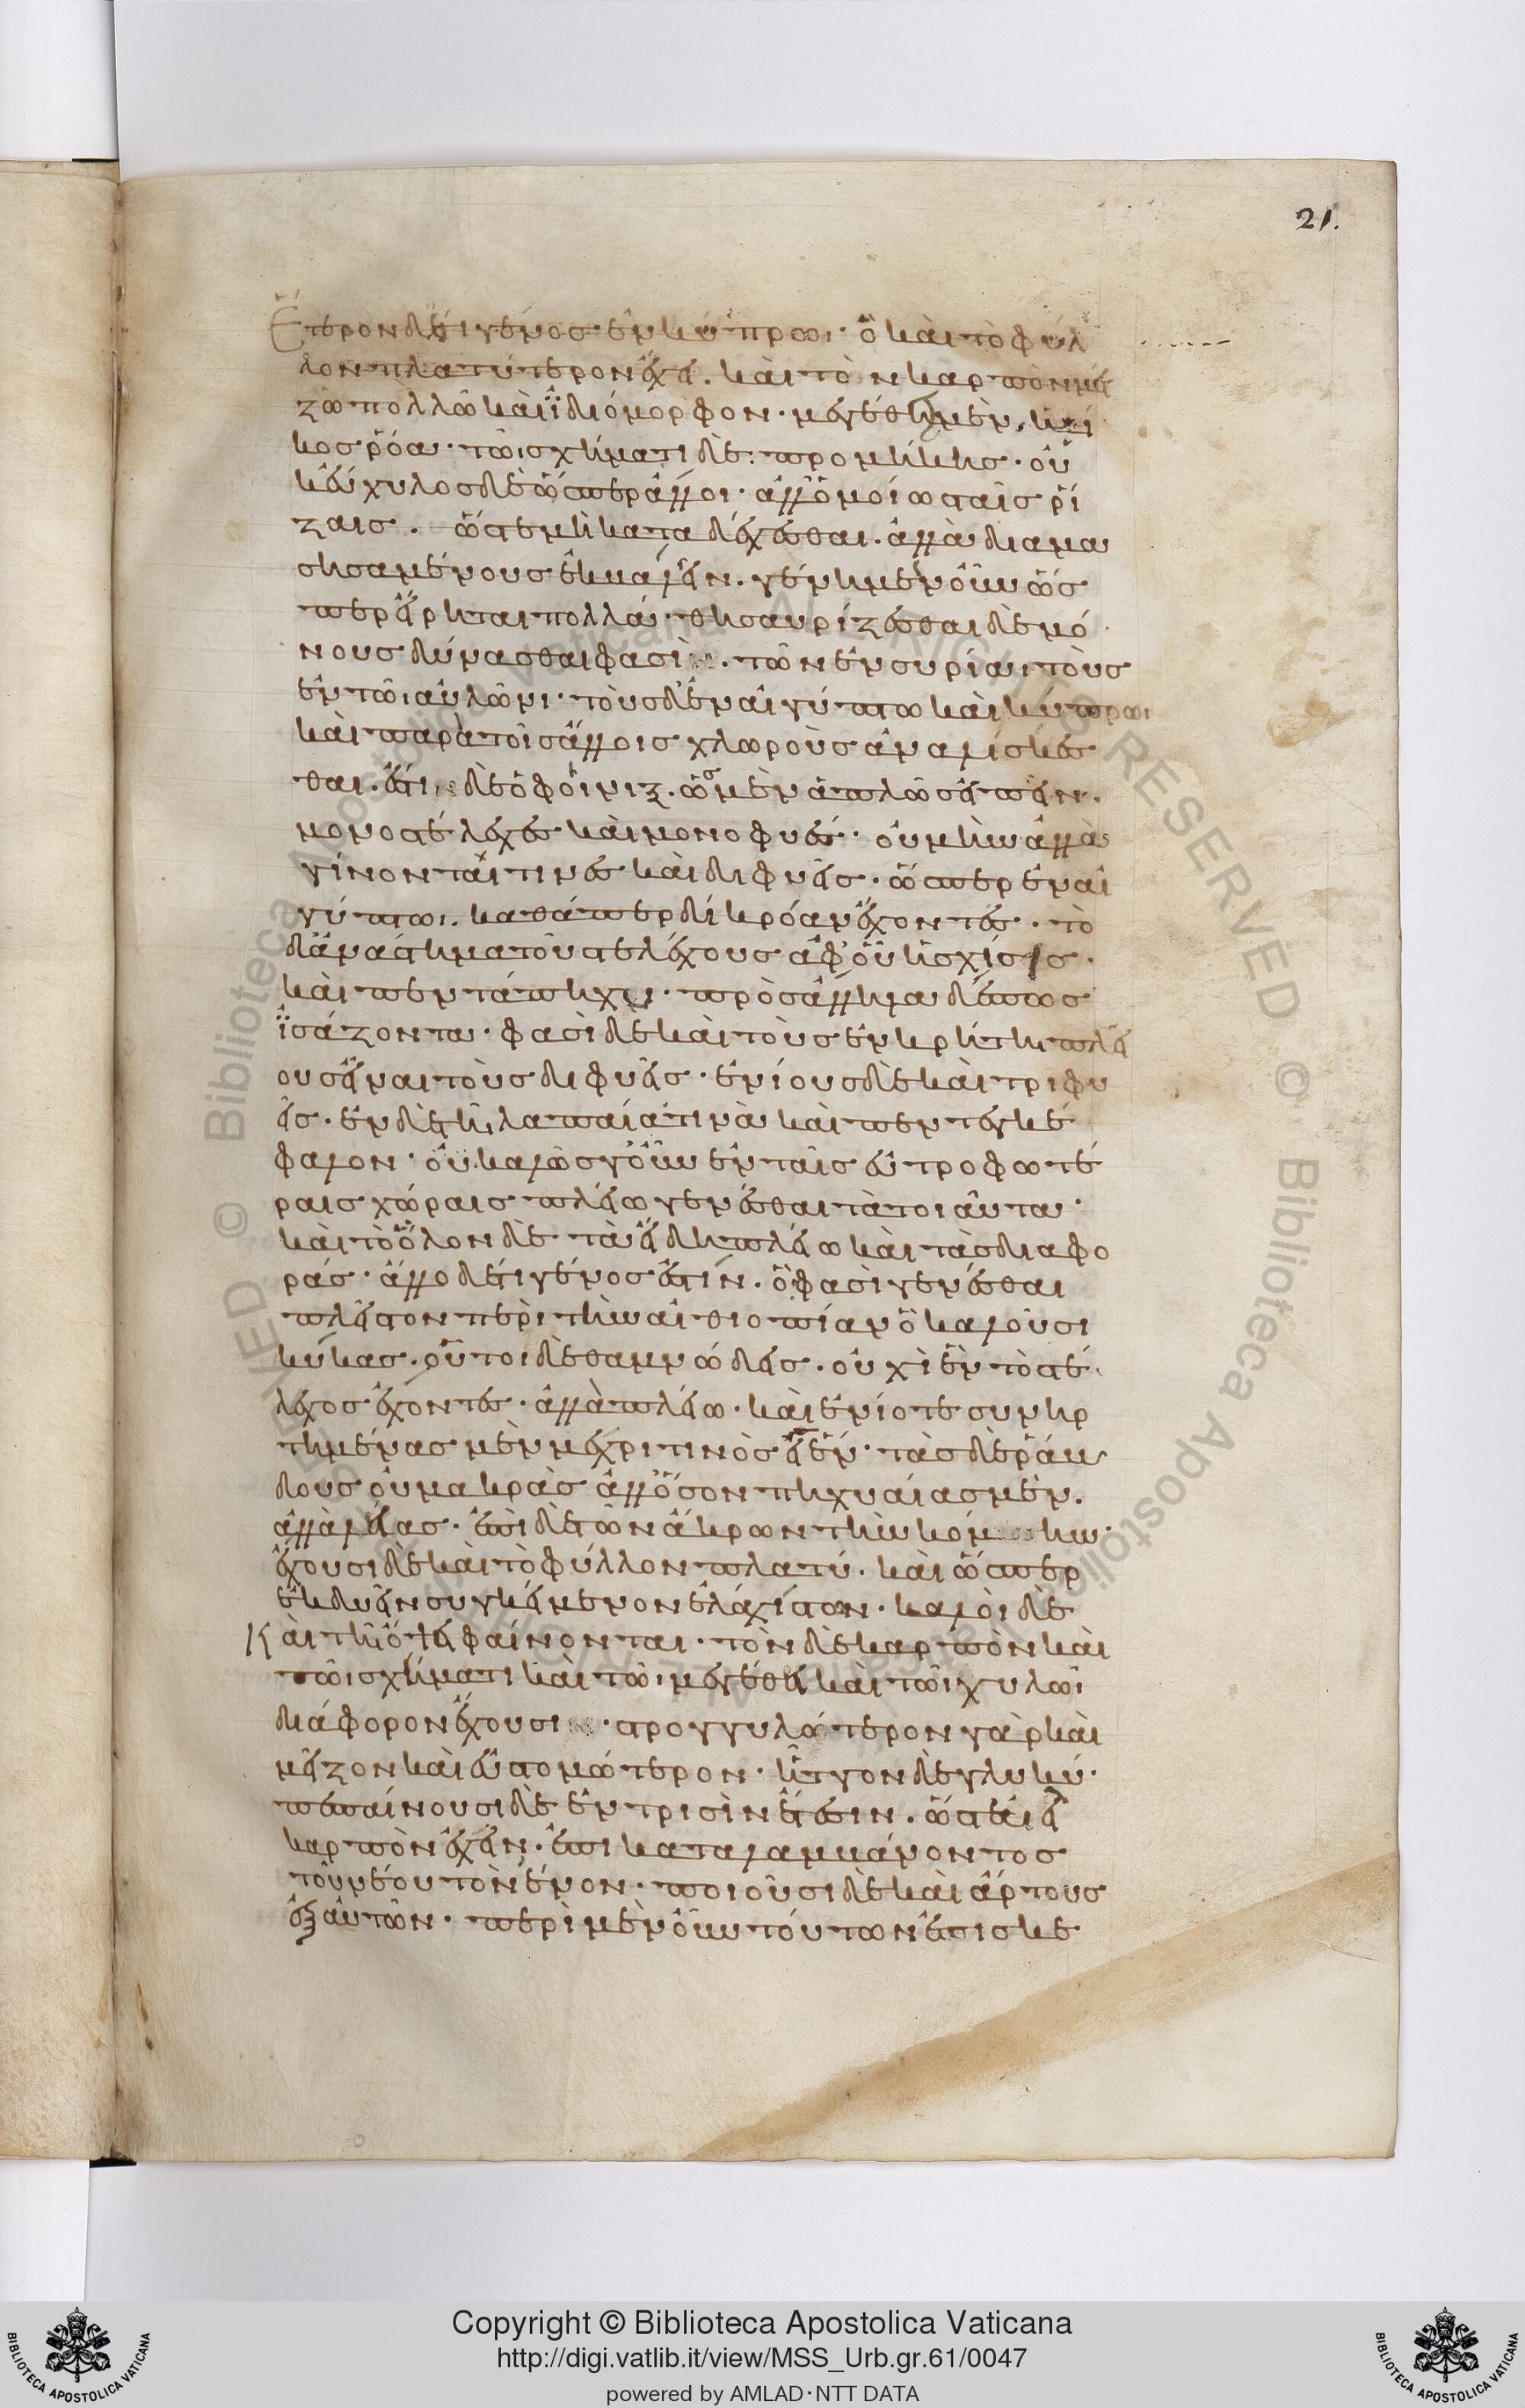 21.
Ἕτερον δέ τι γένος ἐν κύπρωι· ὃ καὶ τὸ φύλ
λον πλατύτερον ἔχει. καὶ τὸν καρπὸν μεί
ζω πολλῶ καὶ ἰδιόμορφον· μέγεθος μὲν, ἡλί
κος ῥόα· τῶι σχήματι δὲ· προμήκης· οὐ
κ εὔχυλος δὲ ὥσπερ ἄλλοι· ἀλλ' ὅμοιως ταῖς ῥί
ζαις. ὥστε μὴ καταδέχεσθαι. ἀλλὰ διαμα
σησαμένους ἐκβάλλειν. γένη μὲν οὖν ὥσ
περ εἴρηται πολλά· θησαυρίζεσθαι δὲ μό
νους δύνασθαι φασὶ. τῶν ἐν συρίαι τοὺς
ἐν τῶι αὐλῶνι· τοὺς δ' ἐν αἰγύπτω καὶ κύπρωι
καὶ παρὰ τοῖς ἄλλοις χλωροὺς ἀναλίσκεσ
θαι. ἔστι δὲ ὁ φοῖνιξ. ὡς μὲν ἁπλῶς εἰπεῖν.
μονοστέλεχες καὶ μονοφυές· οὐ μὴν ἀλλὰ
γίνονται τινὲς καὶ διφυεῖς· ὥσπερ ἐν αἰ
γύπτωι. καθάπερ δίκρόαν ἔχοντες· τὸ
δ' ἀνάστημα τοῦ στελέχους ἀφ' οὗ ἡ σχίσις·
καὶ πεντάπηχυ· πρὸς ἄλληλα δέ πως
ἰσάζοντα· φασὶ δὲ καὶ τοὺς ἐν κρήτη πλεί
ους εἶναι τοὺς διφυεῖς· ἐνίους δὲ καὶ τριφυ
εῖς· ἐν δὲ τῆι λαπαίαι τινὰ καὶ πεντεκέ
φαλον· οὐ κακῶς γ' οὖν ἐν ταῖς εὐτροφωτέ
ραις χώραις πλείω γενέσθαι τὰ τοιαῦτα·
καὶ τὸ ὅλον δὲ τὰ εἴδη πλείω καὶ τὰς διαφο
ράς· ἄλλο δέ τι γένος ἐστίν. ὅ φασὶ γενέσθαι
πλεῖστον περὶ τὴν αἰθιοπίαν ὃ καλοῦσι
κύκας. οὗτοι δὲ θαμνώδεις. οὐχὶ ἓν τὸ στέ
λεχος ἔχοντες· ἀλλὰ πλείω· καὶ ἐνίοτε συνηρ
τημένας μὲν μέχρι τινὸς εἰς ἕν· τὰς δὲ ῥάβ
δους οὐ μακρὰς ἀλλ' ὅσον πηχυαίας μέν.
ἀλλὰ λείας· ἐπὶ δὲ τῶν ἄκρων τὴν κόμην·
ἔχουσι δὲ καὶ τὸ φύλλον πλατύ· καὶ ὥσπερ
ἐκ δυεῖν συγκείμενον ἐλαχίστοιν· καλοὶ δὲ
Καὶ τῆ ὄψει φαίνονται· τὸν δὲ καρπὸν καὶ
τῶι σχήματι καὶ τῶι μεγέθει καὶ τῶι χυλῶι
διάφορον ἔχουσι· στρογγυλώτερον γὰρ καὶ
μεῖζον καὶ εὐστομώτερον· ἧττον δὲ γλυκύ·
πεπαίνουσι δὲ ἐν τρισὶν ἔτεσιν. ὥστε ἀεὶ
καρπὸν ἔχειν· ἐπικαταλαμβάνοντος
τοῦ νέου τὸν ἕνον· ποιοῦσι δὲ καὶ ἄρτους
ἐξ αὐτῶν· περὶ μὲν οὖν τούτων ἐπισκε
Copyright © Biblioteca Apostolica Vaticana
http://digi.vatlib.it/view/MSS_Urb.gr.61/0047
powered by AMLAD·NTT DATA